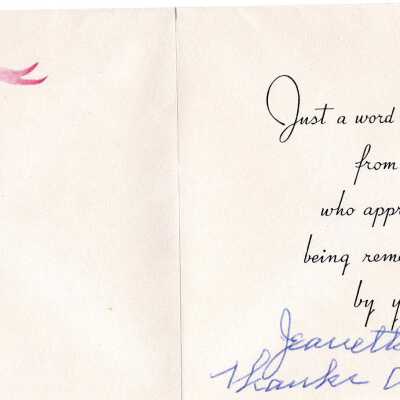 Just a word
from
who appr
being reme
by y
Jeanette
Thanks